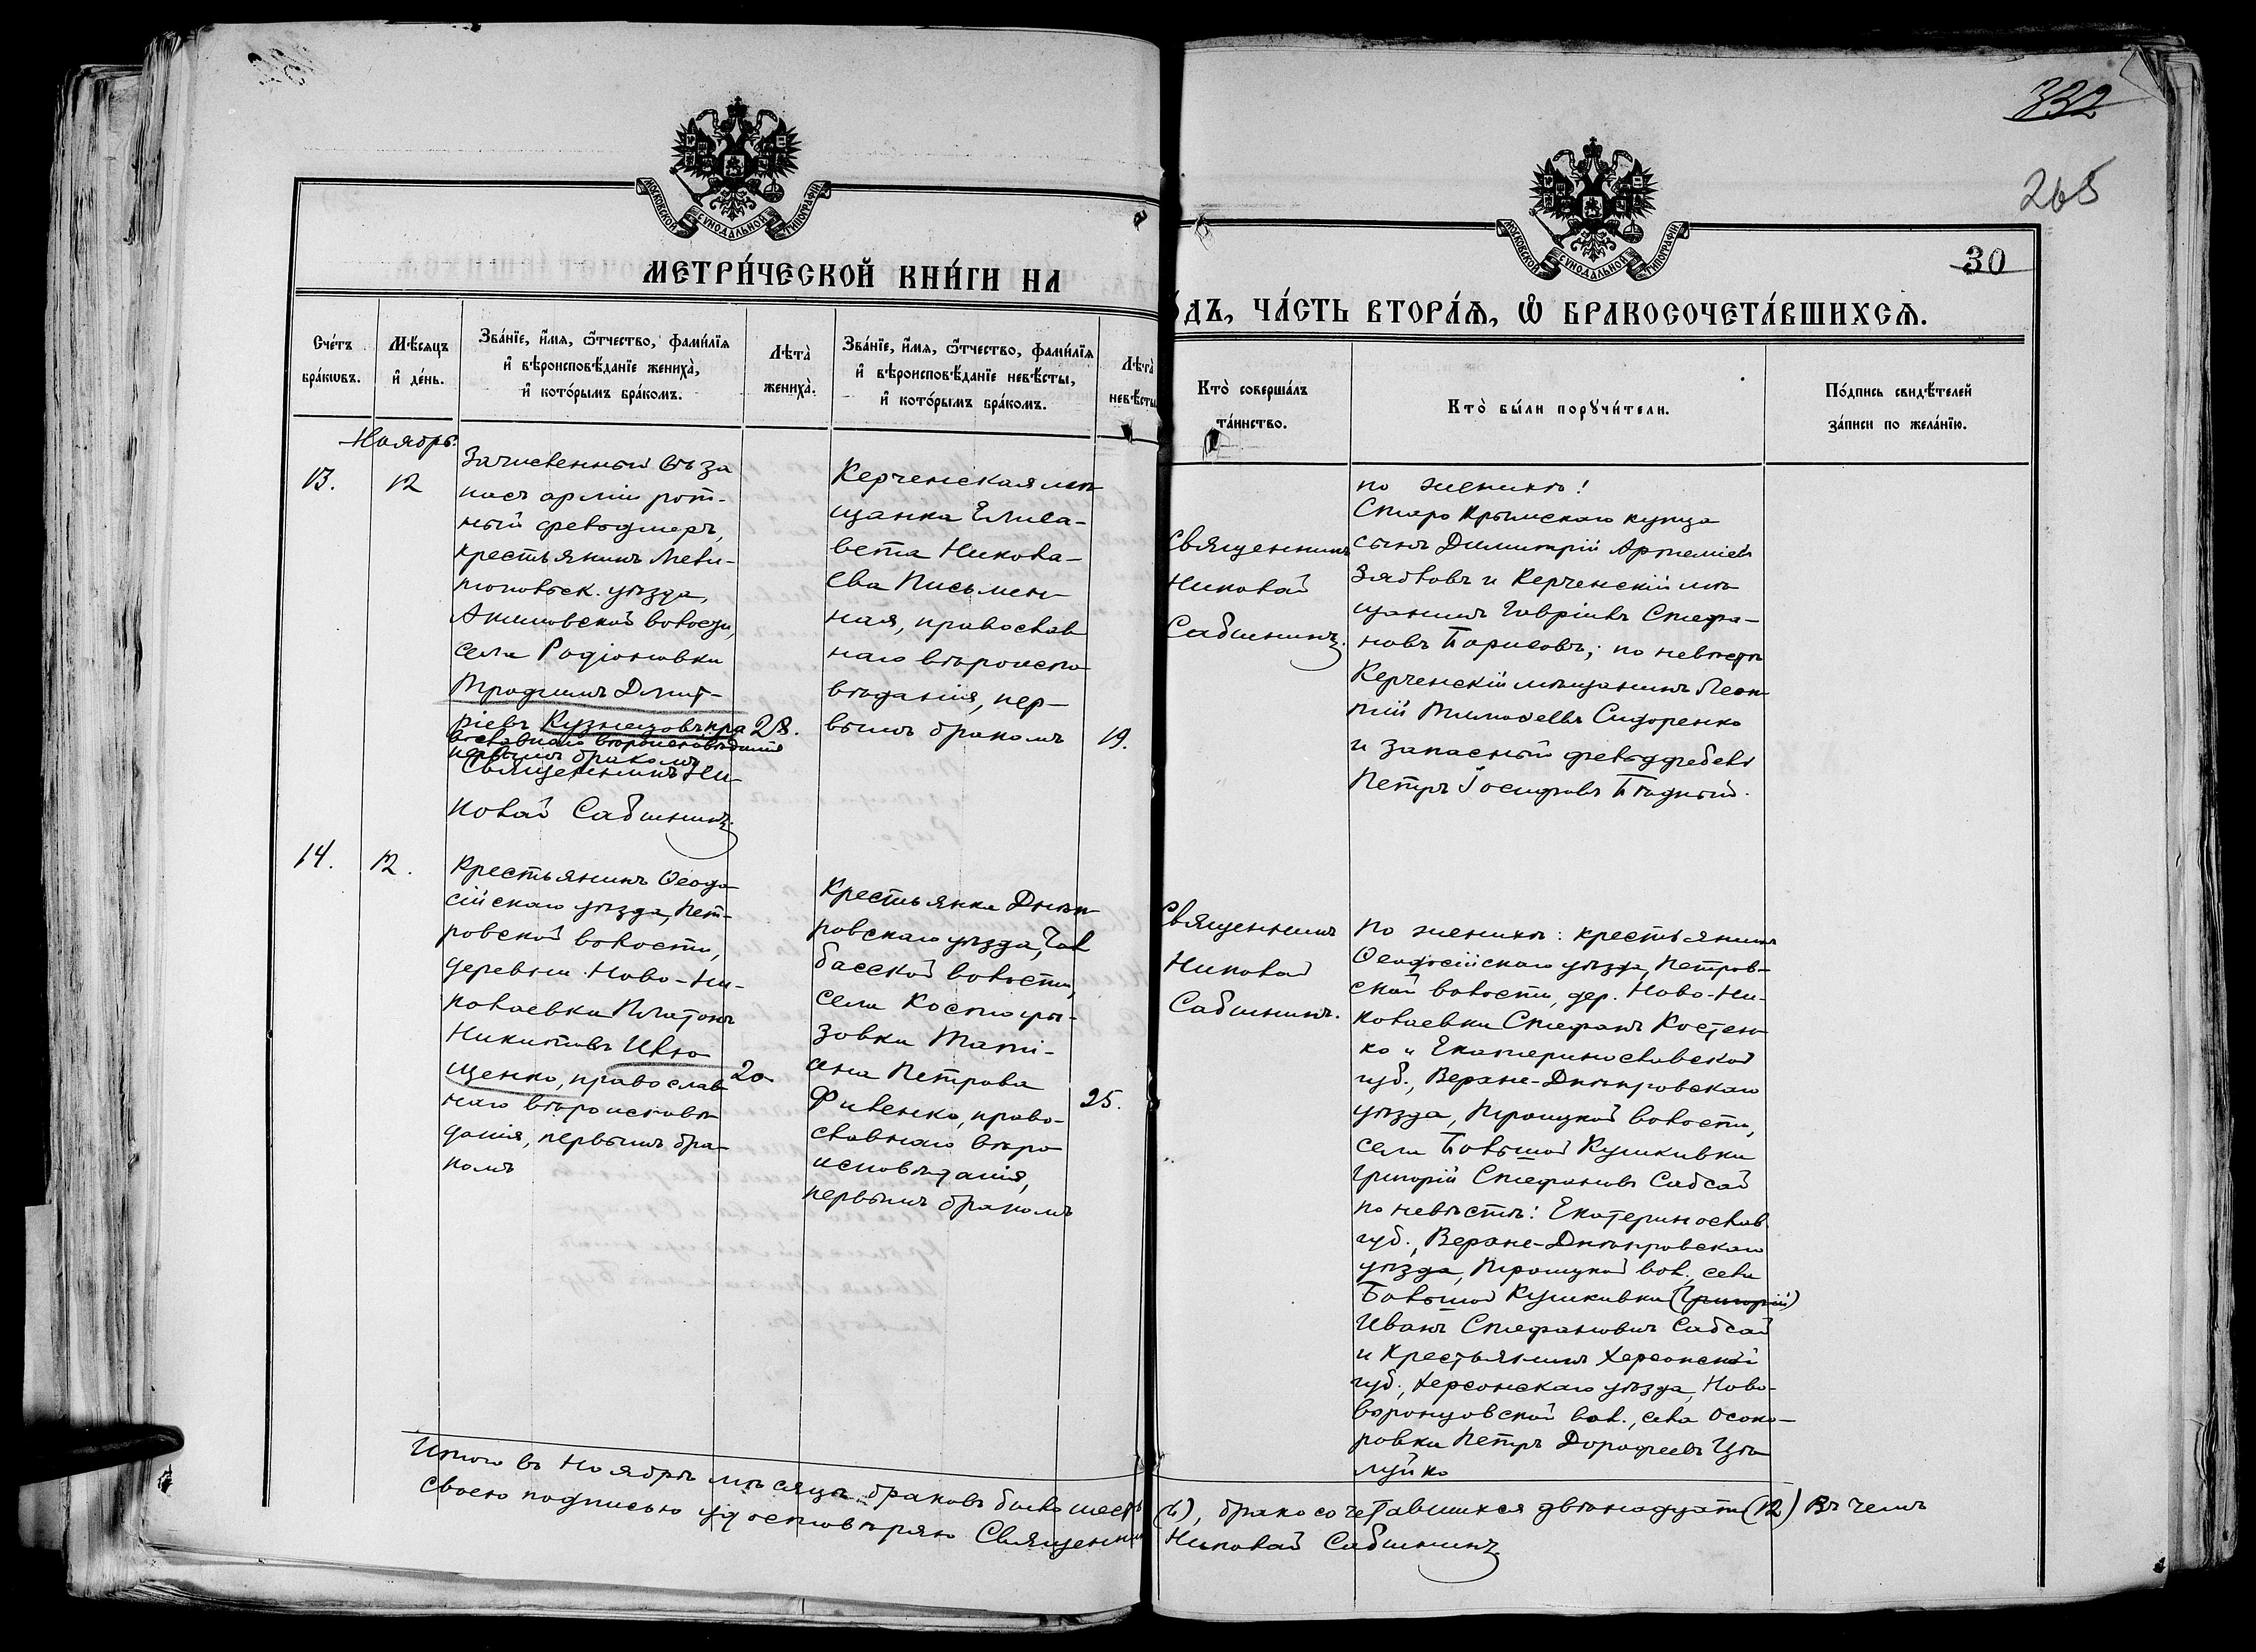 332
265
30
МОСКОВСКОЙ СѴНОДАЛЬНОЙ ТИПОГРАФІИ
МОСКОВСКОЙ СѴНОДАЛЬНОЙ ТИПОГРАФІИ
МЕТРИ́ЧЕСКОЙ КНИ́ГИ НА
О́ДЪ, ЧА́СТЬ ВТОРА́Ѧ, Ѡ҆ БРАКОСОЧЕТА́ВШИХСѦ.
Сче́тъ
бра́кѡвъ.
Мѣ́сѧцъ
и҆ де́нь.
Зва́нїе, и҆́мѧ, ѻ҆́тчество, фами́лїѧ
и҆ вѣроисповѣ́данїе жениха̀,
и҆ кото́рымъ бра́комъ.
Лѣта̀
жениха̀.
Зва́нїе, и҆́мѧ, ѻ҆́тчество, фами́лїѧ
и҆ вѣроисповѣ́данїе невѣ́сты,
и҆ кото́рымъ бра́комъ.
Лѣта̀
невѣ́сты
Кто̀ соверша́лъ
та́инство.
Кто̀ бы́ли порꙋчи́тели.
По́дпись свидѣ́телей
за́писи по жела́нїю.
Ноябрь.
13.
12
Зачисленный въ за
пасъ арміи рот-
ный фельдшеръ,
крестьянинъ Мели-
топольск. уѣзда,
Акимовской волости,
села Родіоновки
Трофимъ Димит-
ріевъ Кузнецовъ, пра
вославнаго вѣроисповѣданія
первымъ бракомъ
Священникъ Ни-
колай Сабининъ.
28.
Керченская мѣ
щанка Елиса-
вета Никола-
ева Письмен
ная, православ
наго вѣроиспо
вѣданія, пер-
вымъ бракомъ
19.
Священникъ
Николай
Сабининъ.
по женихѣ:
Старо Крымскаго купца
сынъ Димитрій Артеміевъ
Зябловъ и Керченскій мѣ
щанинъ Гавріилъ Стефа-
новъ Борисовъ; по невѣстѣ
Керченскій мѣщанинъ Леон
тій Тимоѳеевъ Сидоренко
и запасный фельдфебель
Петръ Іосифовъ Бѣдный.
14.
12.
Крестьянинъ Ѳеодо
сійскаго уѣзда, Пет-
ровской волости,
деревни Ново-Ни-
колаевки Платонъ
Никитовъ Ивю
щенко, православ
наго вѣроисповѣ
данія, первымъ бра-
комъ
20
Крестьянка Днѣп
ровскаго уѣзда, Чал
басской волости,
села Костогры-
зовки Тати-
ана Петрова
Фивенко, право-
славнаго вѣро
исповѣданія,
первымъ бракомъ
25.
Священникъ
Николай
Сабининъ.
По женихѣ: крестьянинъ
Ѳеодосійскаго уѣзда, Петров-
ской волости, дер. Ново-Ни-
колаевки Стефанъ Костен
ко и Екатеринославской
губ., Верхне-Днѣпровскаго
уѣзда, Троицкой волости,
села Большой Кушкивки
Григорій Стефановъ Сабсай
по невѣстѣ: Екатеринослав.
губ., Верхне-Днѣпровскаго
уѣзда, Троицкой вол., села
Большой Кушкивки (Григорій)
Иванъ Стефановичъ Сабсай
и крестьянинъ Херсонской
губ., Херсонскаго уѣзда, Ново-
воронцовской вол., села Осоко-
ровки Петръ Дорофеевъ Цѣ
луйко
Итого въ Ноябрѣ мѣсяцѣ браковъ было шесть (6), бракосочетавшихся двѣнадцать (12) Въ чемъ
своею подписью удостовѣряю Священникъ Николай Сабининъ.